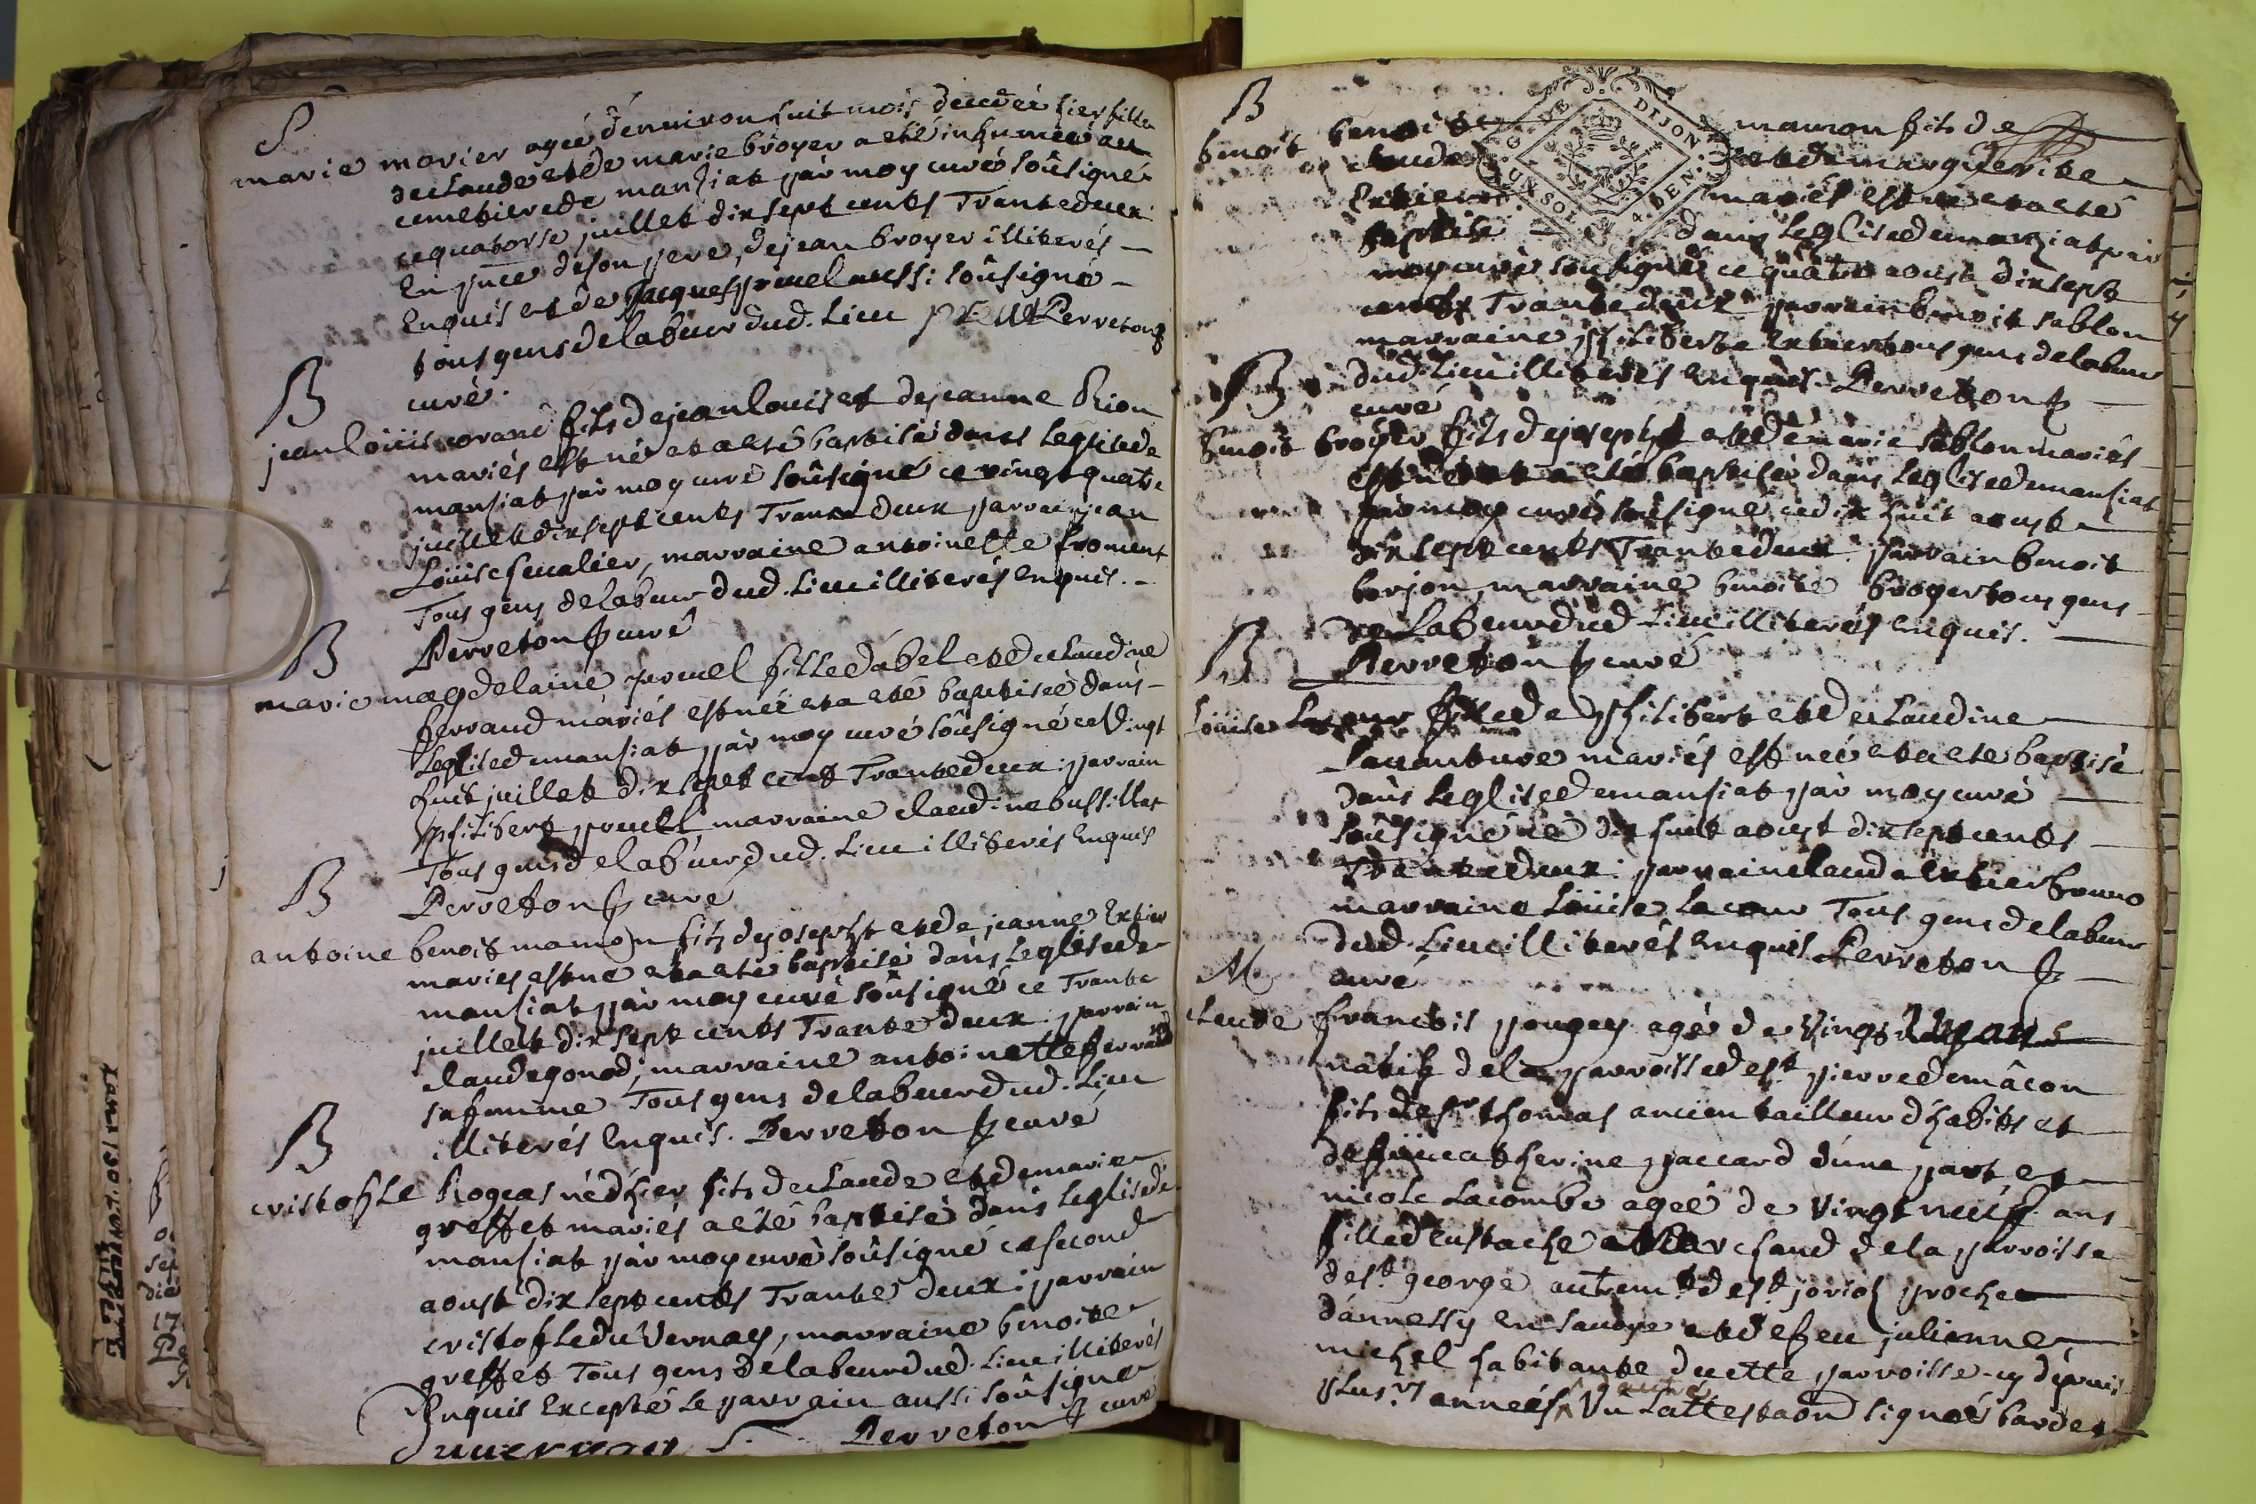 S
marie morier ageé d'enuiron huit mois decedeé hier fille
de claude et de marie broyer a eté inhumeé au
cemetiere de mansiat par moy curé soûsigné
ce quatorse juillet dix sept cents Trante deux
En pñce de son pere, de jean broyer illiterés
Enquis et de jacques pruel aussi soûsigné
tous gens de labeur dud. Lieu Perreton
curé.
B
jean loüis morand fils de jean louis et de jeanne Rion
mariés est né et a eté baptisé dans leglise de
mansiat par moy curé soûsigné ce vingt quatre
juillet dix sept cents Trante deux parrain jean
Loüis cheualier, marraine antoinette froment
Tous gens de labeur dud. Lieu illiterés Enquis.
Perreton curé
B
marie magdelaine pruel fille d'abel et de claudine
ferrand mariés est neé et a eté baptiseé dans
Leglise de mansiat par moy curé soûsigné ce Vingt
huit juillet dix sept cent Trante deux : parrain
philibert pruel marraine claudine bussillet
Tous gens de labeur dud. Lieu illiterés Enquis
Perreton curé
B
antoine benoit mamon fils de joseph et de jeanne Extier
mariés est né et a eté baptisé dans leglise de
mansiat par moy curé soûsigné ce Trante
juillet dix sept cents Trante deux : parrain
claude gonod, marraine antoinette ferrand
sa femme Tous gens de labeur dud. Lieu
illiterés Enquis. Perreton curé
B
cristofle Rogeas né d'hier fils de claude et de marie
greffet mariés a eté baptisé dans leglise de
mansiat par moy curé soûsigné ce second
aoust dix sept cents Trante deux : parrain
cristofle du Vernay, marraine benoite
greffet Tous gens de labeur dud. Lieu illiterés
Enquis Excepté le parrain aussi soûsigné
Perreton curé
B
benoit benoit mamon fils de
claude et de marguerite
Extier mariés est né et a eté
baptisé dans Leglise de manziat par
moy curé soûsigné ce quatre aoust dix sept
cents Trante deux parrain benoit sablon
marraine philiberte Extier tous gens de labeur
dud. Lieu illiterés Enquis Perreton
curé
B
benoit broyer fils de joseph et de marie sablon mariés
est né et a eté baptisé dans leglise de mansiat
par moy curé soûsigné ce dix huit aoust
dix sept cents Trante deux : parrain benoit
borjon, marraine benoite broyer tous gens
de Labeur dud. Lieu illiterés Enquis.
Perreton curé
B
Loüise Lacour fille de philibert et de claudine
Lauanture mariés est neé et a eté baptisé
dans Leglise de mansiat par moy curé
soûsigné ce dix huit aoust dix sept cents
Trante deux : parrain claude Extier
marraine Loüise Lacour Tous gens de labeur
dud. Lieu illiterés Enquis Perreton
curé
M
claude françois pougey agé de Vingt
natif de la parroisse de st. pierre de mâcon
fils de sr thomas ancien tailleur d'habits et
de catherine paccard d'une part, et
nicole Lacombe ageé de Vingt neuf ans
fille d'Eustache marchand de la parroisse
de st. george autremt. de st. jorioz proche
d'annessy En sauoye et de feu julienne
michel habitante de cette parroisse cy depuis
plusrs années, Vu L'attestaõn signeé bardet